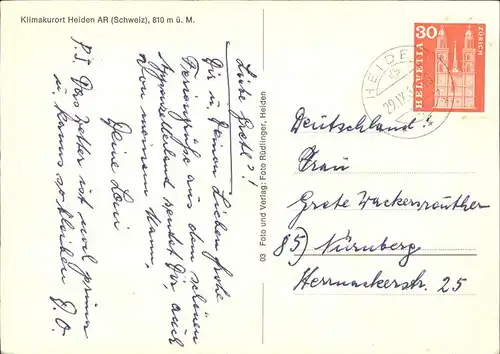 Klimakurort Heiden AR (Schweiz), 810 m ü. M.
Liebe Gretl!
Dir u. Deinen Lieben frohe
Feriengrüße aus dem schönen
Appenzellerland sendet Dir, auch
von meinem Mann,
Deine Loni
P.S. Das Wetter ist noch prima
u. kann so bleiben D.O.
03 Foto und Verlag: Foto Rüdlinger, Heiden
HELVETIA
30
ZÜRICH
HEIDE
29.IX
Deutschland
Frau
Grete Wackenreuther
85) Nürnberg
Herrnackerstr. 25